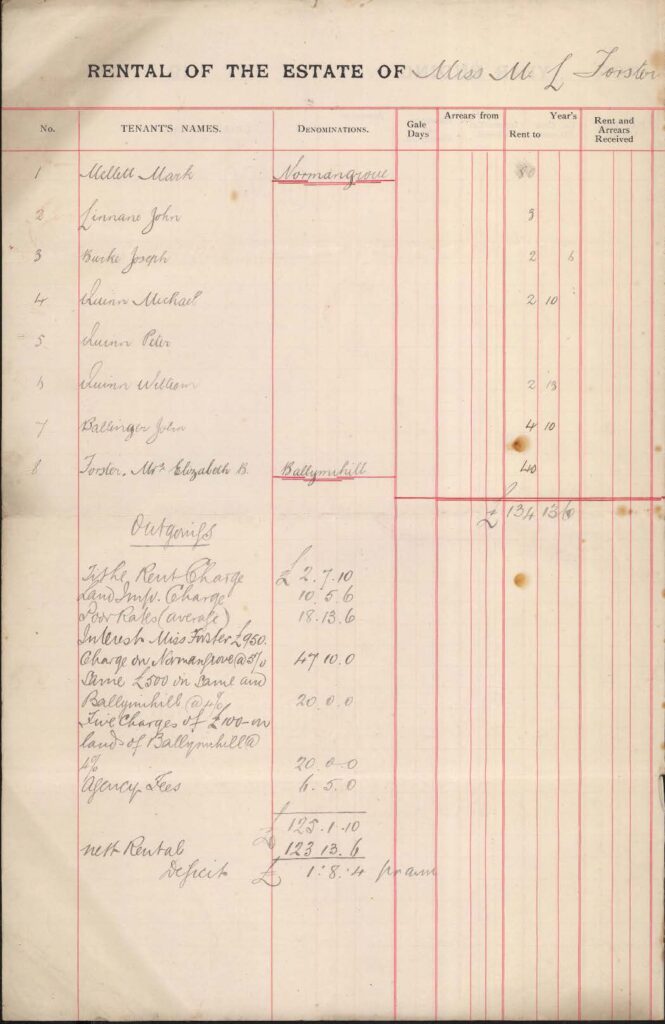 RENTAL OF THE ESTATE OF Miss M L Forster
No. TENANT'S NAMES. DENOMINATIONS. Gale Days Arrears from Rent to Year's Rent and Arrears Received
1 Mellett Mark Normangrove 80
2 Linnane John 3
3 Burke Joseph 2 6
4 Quinn Michael 2 10
5 Quinn Peter
6 Quinn William 2 13
7 Ballinger John 4 10
8 Forster, Mrs Elizabeth B. Ballymihill 40
£ 134 13 6
Outgonifs
Tithe Rent Charge £ 2.7.10
Land Imp. Charge 10.5.6
Poor Rates (average) 18.13.6
Interest Miss Forster £950.
Charge on Normangrove @ 5% 47 10.0
Same £500 on same and
Ballymihill @ 4% 20.0.0
Five Charges of £100 on
lands of Ballymihill @
4% 20.0.0
Agency Fees 6.5.0
£ 125.1.10
nett Rental 123 13.6
Deficit £ 1:8:4 pr ann